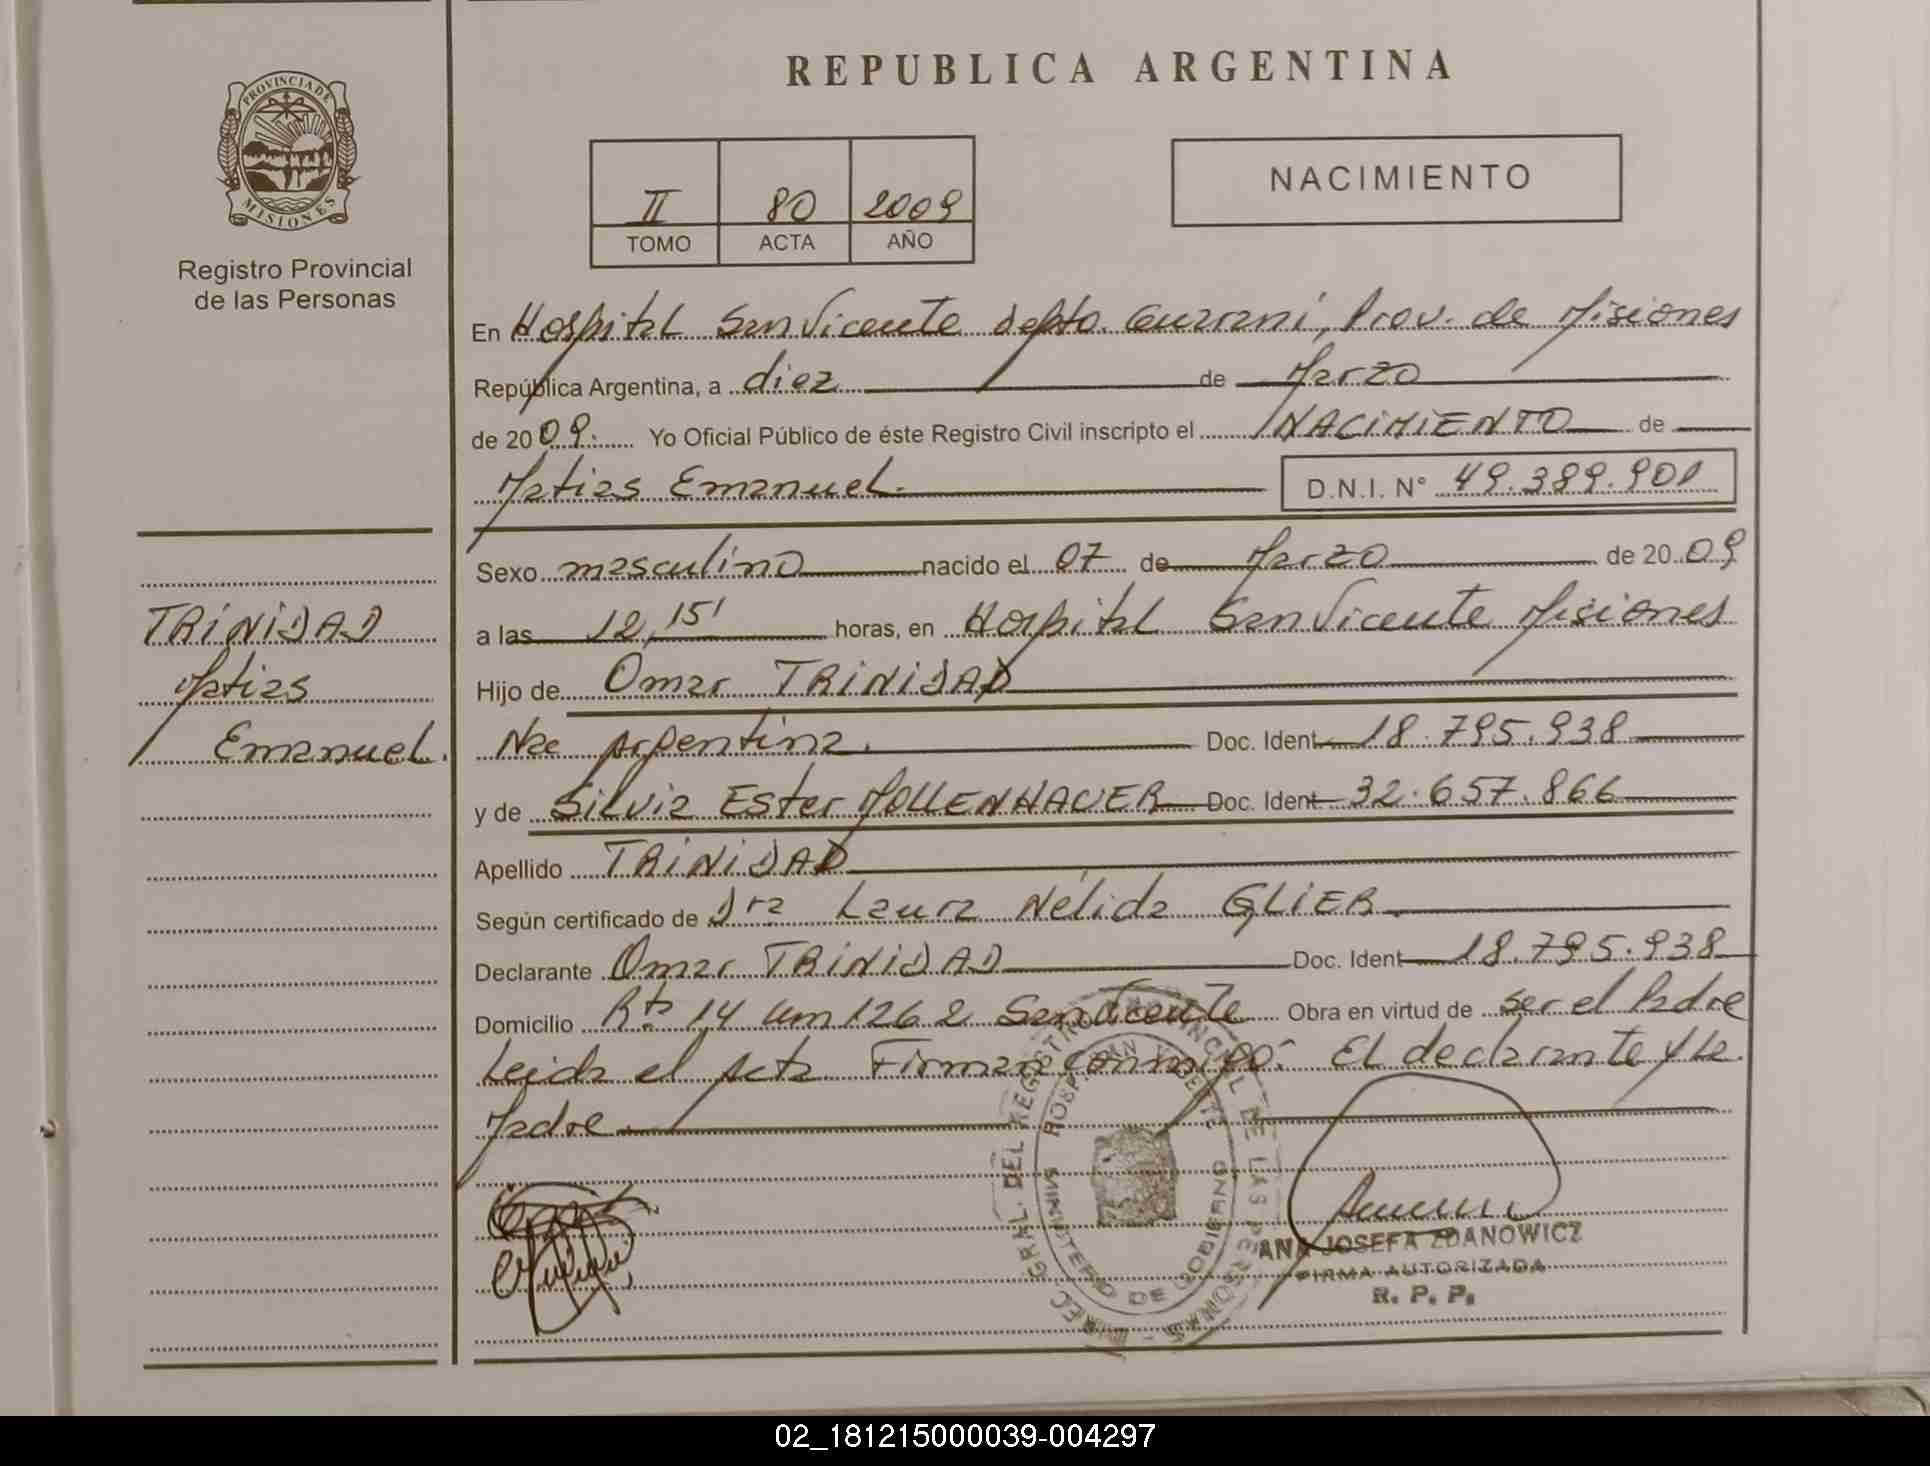 REPUBLICA ARGENTINA
PROVINCIA DE
MISIONES
Registro Provincial
de las Personas
II 80 2009
TOMO ACTA AÑO
NACIMIENTO
En Hospital San Vicente depto. Guarani, Prov. de Misiones
República Argentina, a diez de Marzo
de 2009. Yo Oficial Público de éste Registro Civil inscripto el NACIMIENTO de
Matias Emanuel. D.N.I. N° 49.389.901
Sexo masculino nacido el 07 de Marzo de 2009
a las 12,15' horas, en Hospital San Vicente Misiones
Hijo de Omar TRINIDAD
Nac Argentina. Doc. Ident 18.795.938
y de Silvia Ester MOLLENHAUER Doc. Ident 32.657.866
Apellido TRINIDAD
Según certificado de Dra Laura Nélida GLIER
Declarante Omar TRINIDAD Doc. Ident 18.795.938
Domicilio Rta 14 km 1262 San Vicente Obra en virtud de ser el Padre
Leida el Acta Firman conmigo: El declarante y la
Madre.
TRINIDAD
Matias
Emanuel.
DIREC. GRAL. DEL REGISTRO PROVINCIAL DE LAS PERSONAS -
HOSP. SAN VICENTE
MINISTERIO DE GOBIERNO
ANA JOSEFA ZDANOWICZ
FIRMA AUTORIZADA
R. P. P.
02_181215000039-004297